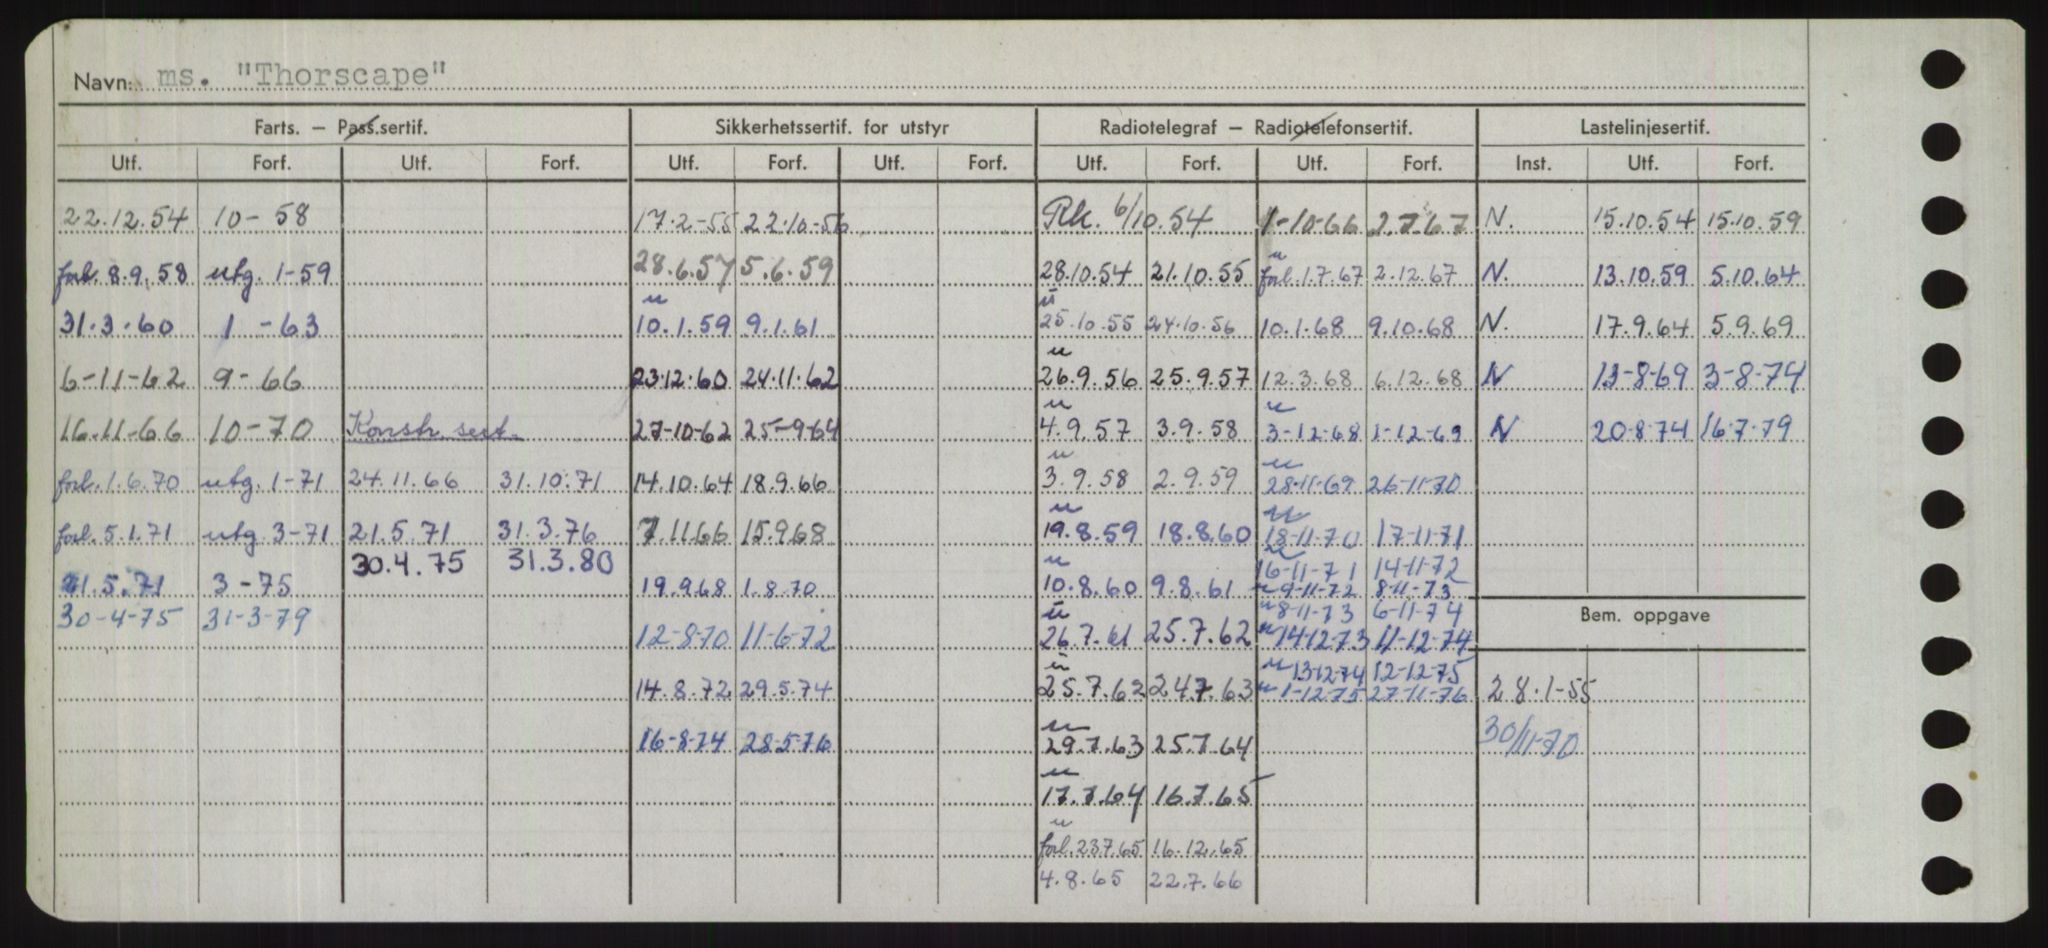 Navn: ms. "Thorscape"
Farts. – Pass.sertif. Sikkerhetssertif. for utstyr Radiotelegraf – Radiotelefonsertif. Lastelinjesertif.
Utf. Forf. Utf. Forf. Utf. Forf. Utf. Forf. Utf. Forf. Utf. Forf. Inst. Utf. Forf.
22.12.54 10- 58 17-2-55 22-10-56 Rk. 6/10.54 1-10-66 2.7.67 N. 15.10.54 15.10.59
forl. 8.9.58 utg. 1-59 28.6.57 5.6.59 28.10.54 21.10.55 u forl. 1.7.67 2.12.67 N. 13.10.59 5.10.64
31.3.60 1 -63 u 10.1.59 9.1.61 u 25.10.55 24.10.56 10.1.68 9.10.68 N. 17.9.64 5.9.69
6-11-62 9- 66 23.12.60 24.11.62 u 26.9.56 25.9.57 12.3.68 6.12.68 N 13-8-69 3-8-74
16-11-66 10-70 Konstr. sert. 27-10-62 25-9-64 u 4.9.57 3.9.58 u 3-12-68 1-12-69 N 20-8-74 16-7-79
forl. 1.6.70 utg. 1-71 24.11.66 31.10.71 14.10.64 18.9.66 u 3.9.58 2.9.59 u 28-11-69 26-11-70
forl. 5.1.71 utg. 3-71 21.5.71 31.3.76 7.11.66 15.9.68 u 19.8.59 18.8.60 u 18-11-70 17-11-71
30.4.75 31.3.80 u 16-11-71 14-11-72
21.5.71 3-75 19.9.68 1.8.70 u 10.8.60 9.8.61 u 9-11-72 8-11-73
30-4-75 31-3-79 u 8-11-73 6-11-74 Bem. oppgave
12-8-70 11-6-72 u 26.7.61 25.7.62 u 14-12-73 11-12-74
u 13-12-74 12-12-75
14.8.72 29.5.74 u 25.7.62 24.7.63 u 1-12-75 27-11-76 28.1-55
16-8-74 28-5-76 u 29.7.63 25.7.64 30/11-70
u 17.7.64 16.7.65
u forl. 23.7.65 16.12.65
4.8.65 22.7.66